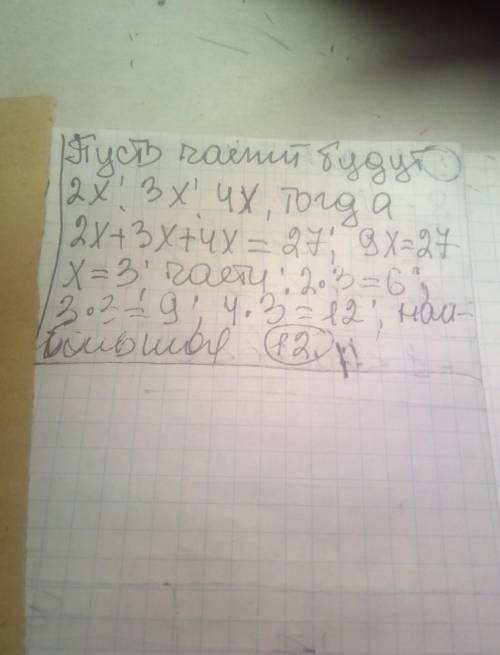 Пусть части будут
2x; 3x; 4x, тогда
2x+3x+4x=27; 9x=27
x=3; части: 2·3=6;
3·3=9; 4·3=12; наи-
большая 12.